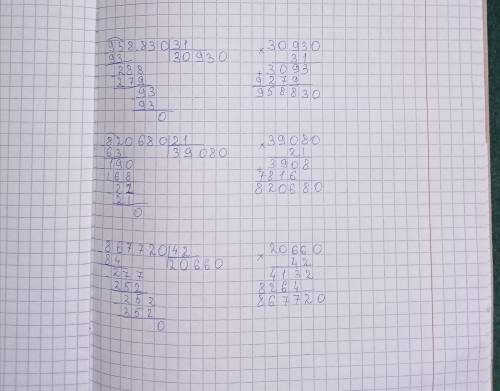 958.830 31 × 30930
93 30930 31
288 + 3093
279 9279
93 958830
93
0
820680 21 × 39080
63 39080 21
190 + 3908
168 7816
21 820680
21
0
867720 42 × 20660
84 20660 42
277 4132
252 8264
252 867720
252
0